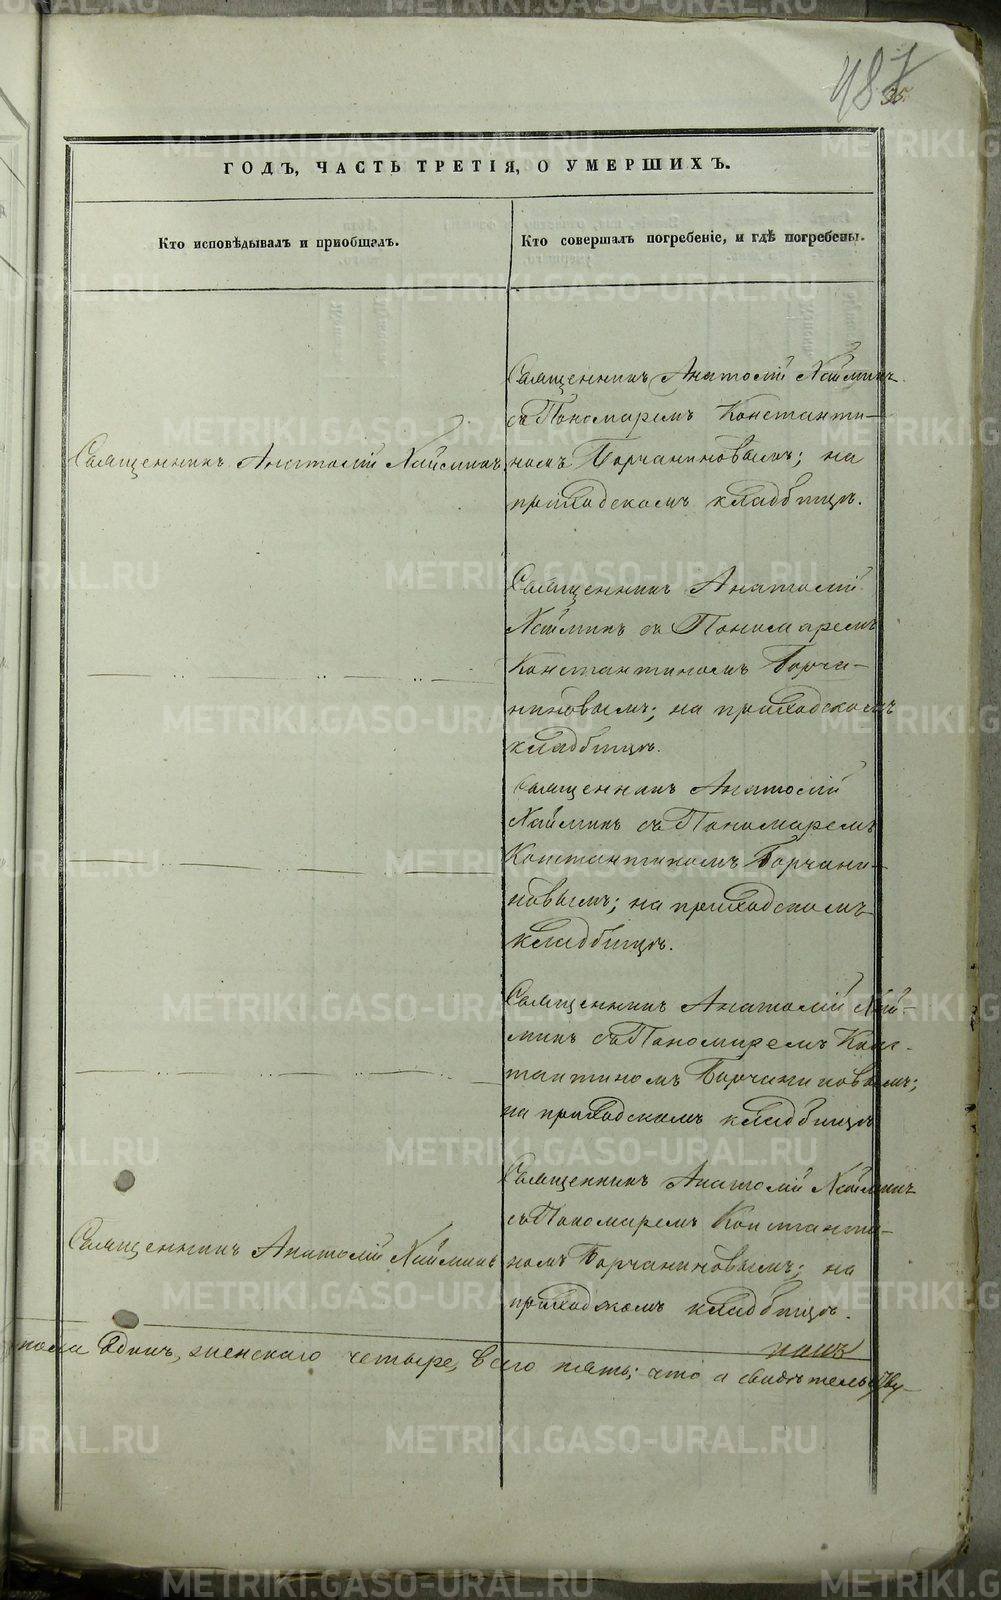 487
ГОДЪ, ЧАСТЬ ТРЕТІЯ, О УМЕРШИХЪ.
Кто исповѣдывалъ и пріобщалъ.
Кто совершалъ погребеніе, и гдѣ погребены.
Священникъ Анатолій Наймикъ
Священникъ Анатолій Наймикъ
съ Пономаремъ Константи-
номъ Борчаниновымъ; на
приходскомъ кладбищѣ.
Священникъ Анатолій
Наймикъ съ Пономаремъ
Константиномъ Борча-
ниновымъ; на приходскомъ
кладбищѣ.
Священникъ Анатолій
Наймикъ съ Пономаремъ
Константиномъ Борчани-
новымъ; на приходскомъ
кладбищѣ.
Священникъ Анатолій Най-
микъ съ Пономаремъ Конс-
тантиномъ Борчаниновымъ;
на приходскомъ кладбищѣ
Священникъ Анатолій Наймикъ
Священникъ Анатолій Наймикъ
съ Пономаремъ Константи-
номъ Борчаниновымъ; на
приходскомъ кладбищѣ.
пола одинъ, женскаго четыре, всего пять; что и свидѣтельству-
METRIKI.GASO-URAL.RU